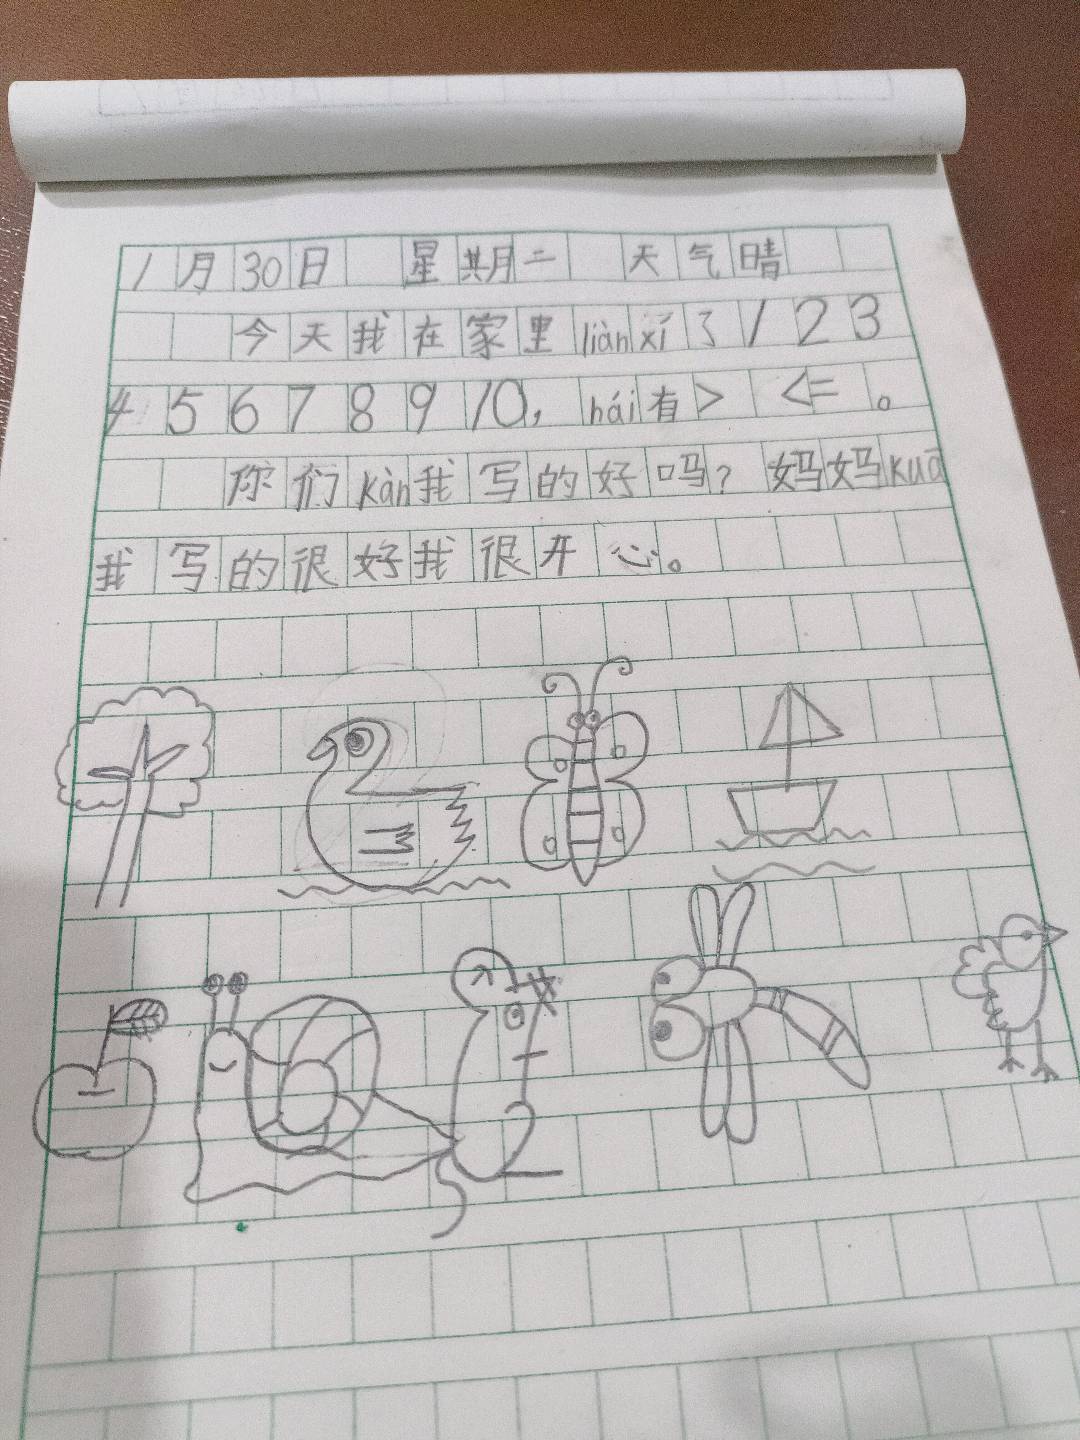 1月30日 星期二 天气晴
今天我在家里liàn xí了1 2 3
4 5 6 7 8 9 10，hái有> <= 。
你们kàn我写的好吗？妈妈kuā
我写的很好我很开心。